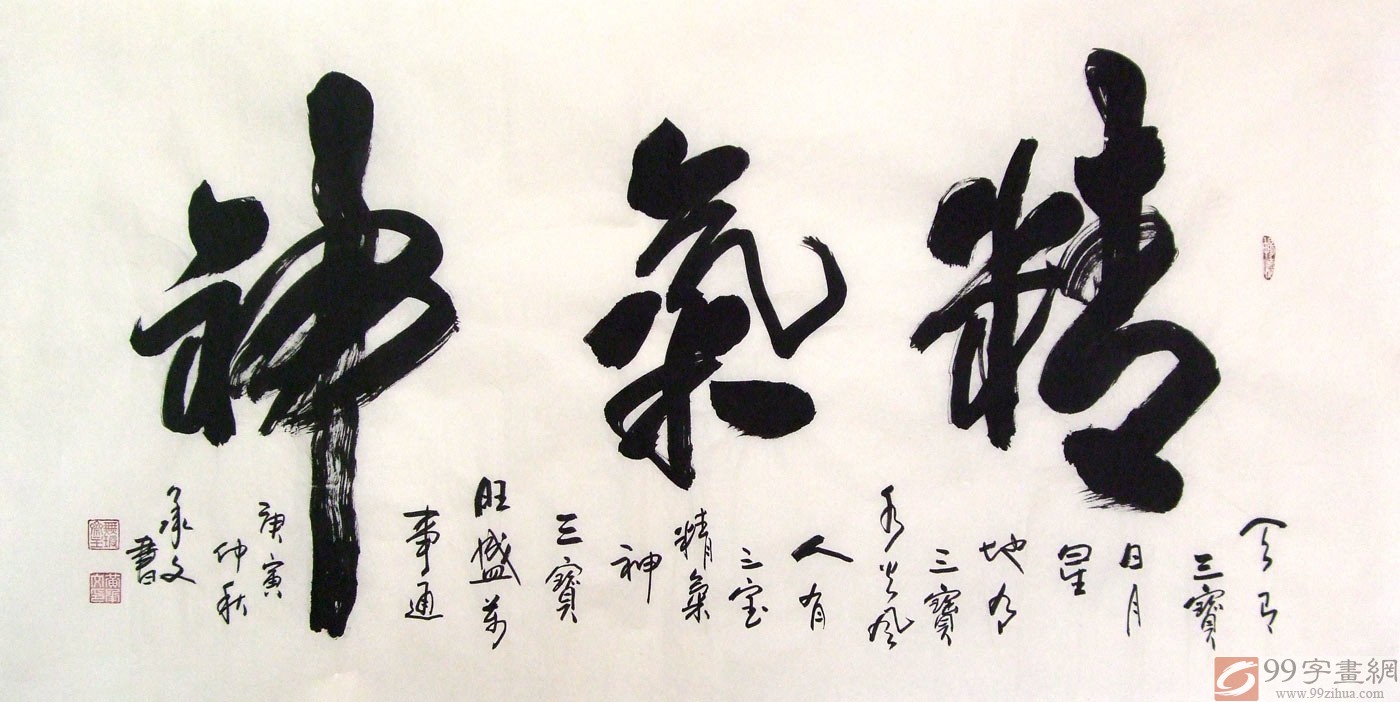 精氣神
天有
三寶
日月
星
地有
三寶
水火風
人有
三宝
精氣
神
三寶
旺盛萬
事通
庚寅
仲秋
承文
書
99字畫網
www.99zihua.com